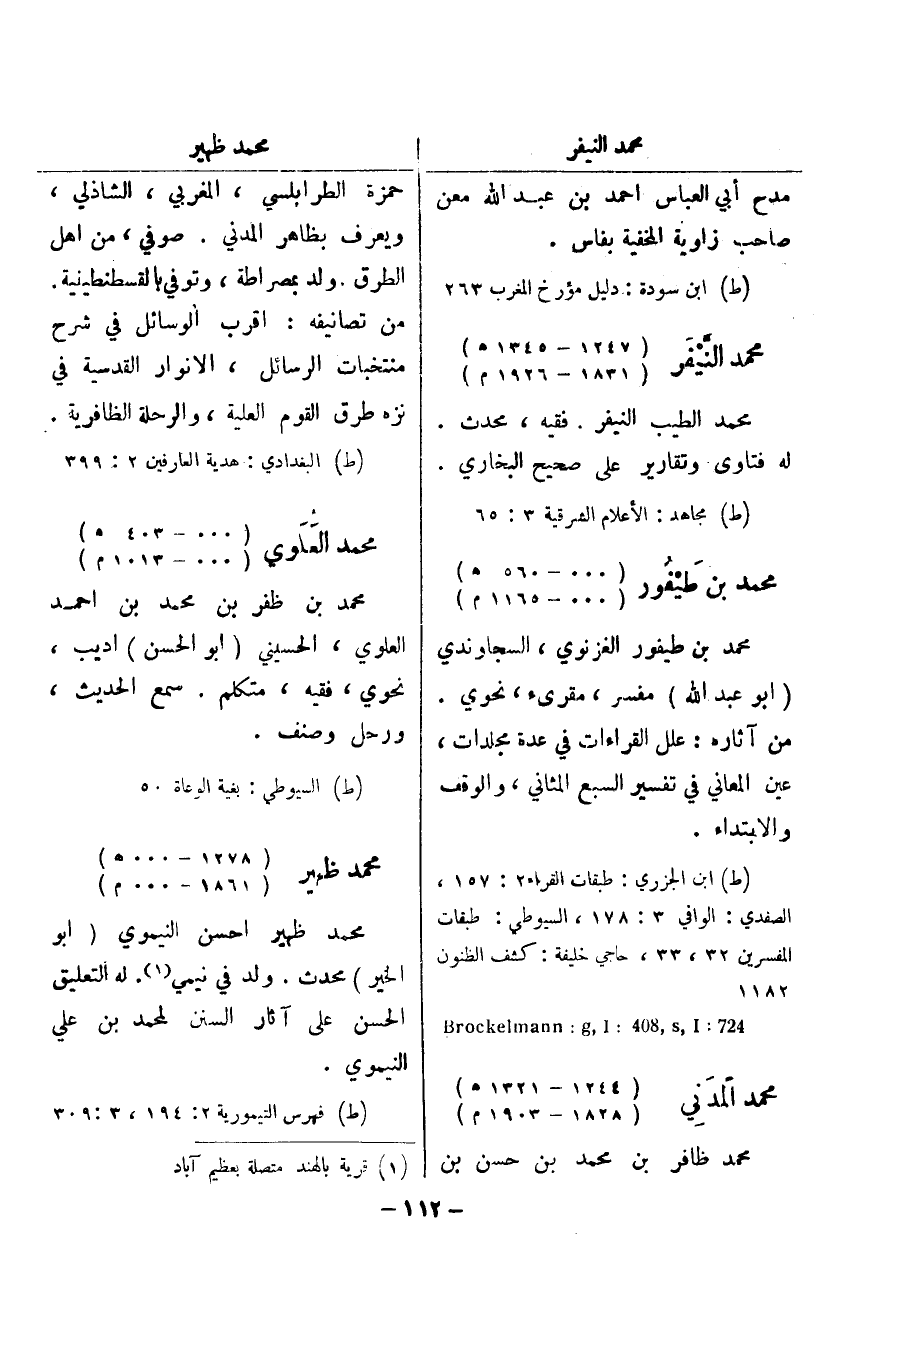 محمد النيفر
مدح أبي العباس احمد بن عبد الله معن
صاحب زاوية المخفية بفاس .
(ط) ابن سودة : دليل مؤرخ المغرب ٢٦٣
محمد النَّيْفَر
( ١٢٤٧ – ١٣٤٥ ه )
( ١٨٣١ – ١٩٢٦ م )
محمد الطيب النيفر . فقيه ، محدث .
له فتاوى وتقارير على صحيح البخاري .
(ط) مجاهد : الأعلام الشرقية ٣ : ٦٥
محمد بن طَيْفُور
( ٠٠٠ – ٥٦٠ ه )
( ٠٠٠ – ١١٦٥ م )
محمد بن طيفور الغزنوي ، السجاوندي
( ابو عبد الله ) مفسر ، مقرىء ، نحوي .
من آثاره : علل القراءات في عدة مجلدات ،
عين المعاني في تفسير السبع المثاني ، والوقف
والابتداء .
(ط) ابن الجزري : طبقات القراء ٢ : ١٥٧ ،
الصفدي : الوافي ٣ : ١٧٨ ، السيوطي : طبقات
المفسرين ٣٢ ، ٣٣ ، حاجي خليفة : كشف الظنون
١١٨٢
Brockelmann : g, I : 408, s, I : 724
محمد المَدَنِي
( ١٢٤٤ – ١٣٢١ ه )
( ١٨٢٨ – ١٩٠٣ م )
محمد ظافر بن محمد بن حسن بن
محمد ظهير
حمزة الطرابلسي ، المغربي ، الشاذلي ،
ويعرف بظاهر المدني . صوفي ، من اهل
الطرق . ولد بمصراطة ، وتوفي بالقسطنطينية .
من تصانيفه : اقرب الوسائل في شرح
منتخبات الرسائل ، الانوار القدسية في
نزه طرق القوم العلية ، والرحلة الظافرية .
(ط) البغدادي : هدية العارفين ٢ : ٣٩٩
محمد العَلَوي
( ٠٠٠ – ٤٠٣ ه )
( ٠٠٠ – ١٠١٣ م )
محمد بن ظفر بن محمد بن احمد
العلوي ، الحسيني ( ابو الحسن ) اديب ،
نحوي ، فقيه ، متكلم . سمع الحديث ،
ورحل وصنف .
(ط) السيوطي : بغية الوعاة ٥٠
محمد ظهير
( ١٢٧٨ – ٠٠٠ ه )
( ١٨٦١ – ٠٠٠ م )
محمد ظهير احسن النيموي ( ابو
الخير ) محدث . ولد في نيمي(١). له التعليق
الحسن على آثار السنن لمحمد بن علي
النيموي .
(ط) فهرس التيمورية ٢: ١٩٤ ، ٣ : ٣٠٩
(١) قرية بالهند متصلة بعظيم آباد
– ١١٢ –